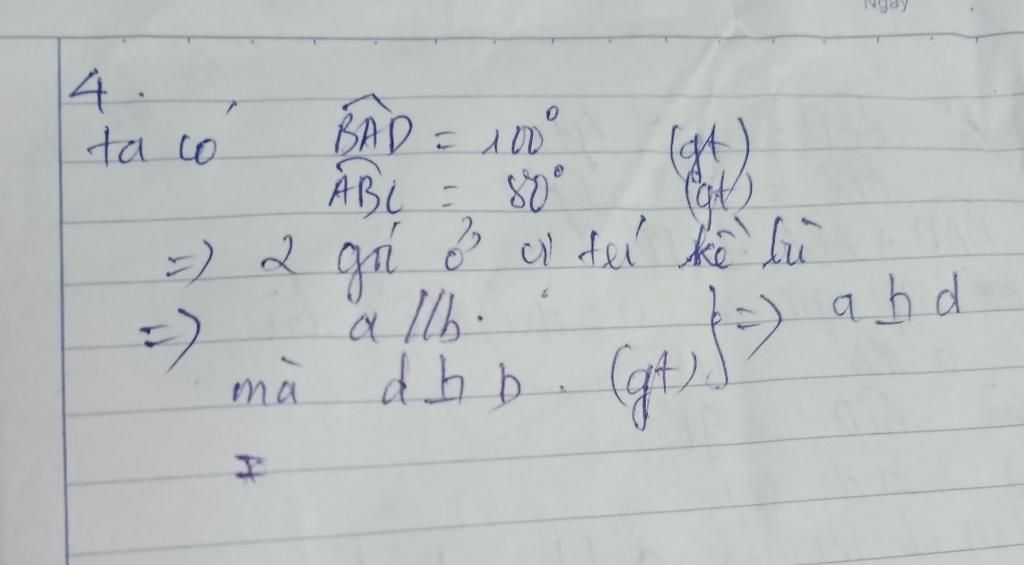 Ngày
4.
ta có \widehat{BAD} = 100° (gt)
\widehat{ABC} = 80° (gt)
=> 2 gói ở vị kề bù
=> a // b. } => a ⊥ d
mà d ⊥ b. (gt)
=